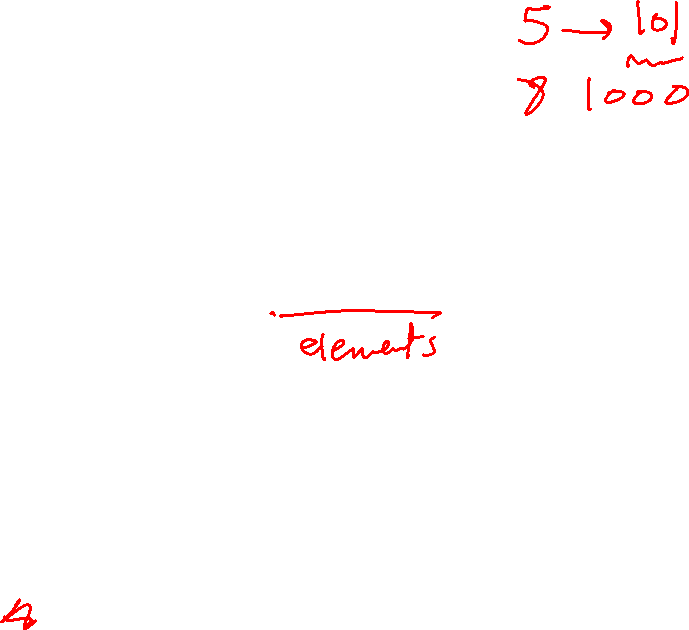 5 → 101
8 1000
elements